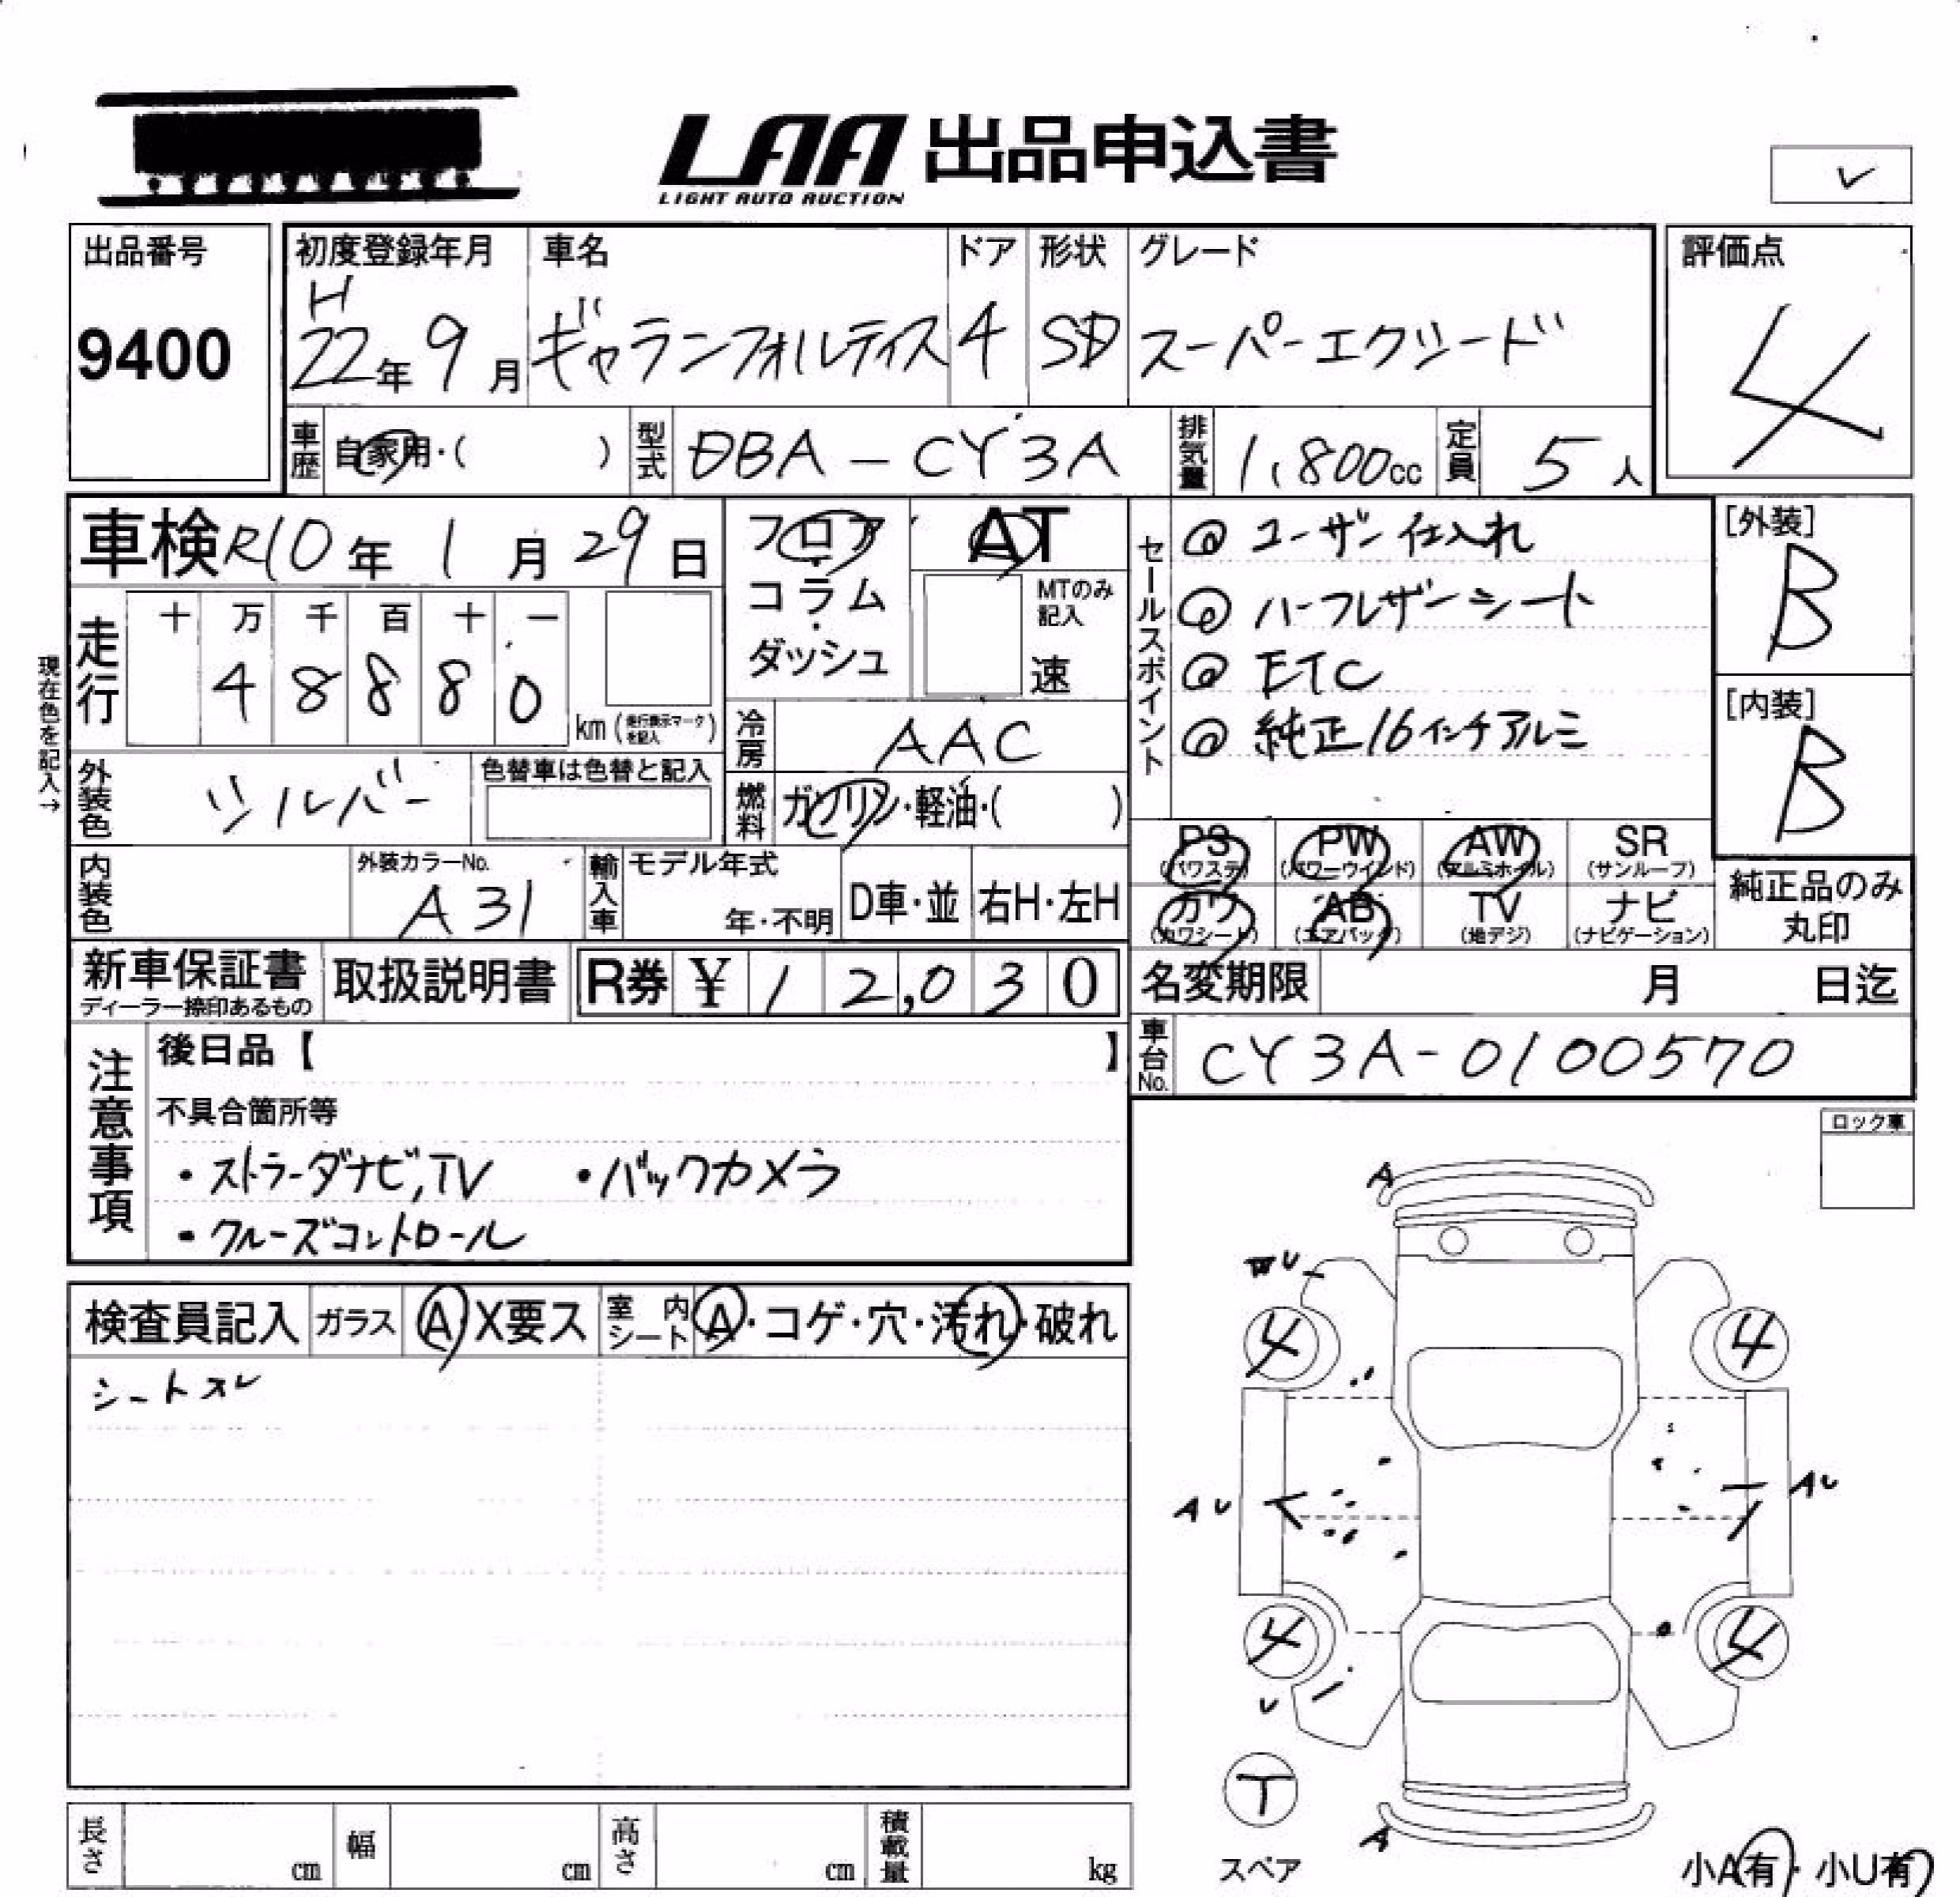 LAA 出品申込書
LIGHT AUTO AUCTION
✓
出品番号
9400
初度登録年月 車名 ドア 形状 グレード
H
22年 9月 ギャランフォルティス 4 SD スーパーエクシード
評価点
4
車歴 自家用・( ) 型式 DBA-CY3A 排気量 1,800cc 定員 5人
車検 R10年 1月 29日
フロア・コラム・ダッシュ
AT
MTのみ記入
速
セールスポイント
@ ユーザー仕入れ
@ ハーフレザーシート
@ ETC
@ 純正16インチアルミ
[外装]
B
[内装]
B
現在色を記入→
走行 十 万 千 百 十 一
4 8 8 8 0
km (走行表示マークを記入)
冷房 AAC
外装色 シルバー 色替車は色替と記入
燃料 ガソリン・軽油・( )
PS (パワステ) PW (パワーウインド) AW (アルミホイル) SR (サンルーフ)
カワ (カワシート) AB (エアバック) TV (地デジ) ナビ (ナビゲーション)
純正品のみ
丸印
内装色 外装カラーNo. A31
輸入車 モデル年式 年・不明 D車・並 右H・左H
新車保証書 ディーラー捺印あるもの 取扱説明書 R券 ¥ 12,030
名変期限 月 日迄
車台No. CY3A-0100570
注意事項
後日品【 】
不具合箇所等
・ストラーダナビ,TV ・バックカメラ
・クルーズコントロール
ロック車
検査員記入 ガラス A・X要ス 室内シート A・コゲ・穴・汚れ・破れ
シートスレ
A
U
4 4
AU AU
4 4
U
T
スペア
A
小A有・小U有
長さ cm 幅 cm 高さ cm 積載量 kg